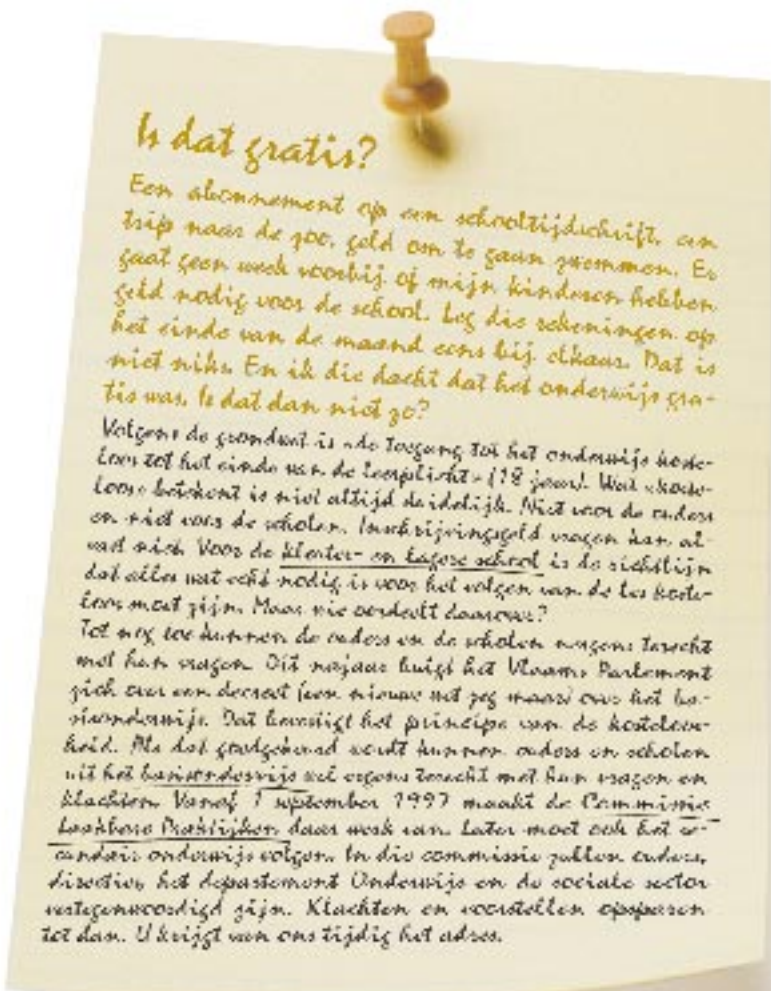 Is dat gratis?
Een abonnement op een schooltijdschrift, een
trip naar de zoo, geld om te gaan zwemmen. Er
gaat geen week voorbij of mijn kinderen hebben
geld nodig voor de school. Leg die rekeningen op
het einde van de maand eens bij elkaar. Dat is
niet niks. En ik die dacht dat het onderwijs gra-
tis was. Is dat dan niet zo?
Volgens de grondwet is «de toegang tot het onderwijs koste-
loos tot het einde van de leerplicht» (18 jaar). Wat «koste-
loos» betekent is niet altijd duidelijk. Niet voor de ouders
en niet voor de scholen. Inschrijvingsgeld vragen kan al-
vast niet. Voor de kleuter- en lagere school is de richtlijn
dat alles wat echt nodig is voor het volgen van de les koste-
loos moet zijn. Maar wie oordeelt daarover?
Tot nog toe kunnen de ouders en de scholen nergens terecht
met hun vragen. Dit najaar buigt het Vlaams Parlement
zich over een decreet (een nieuwe wet zeg maar) over het ba-
sisonderwijs. Dat bevestigt het principe van de kosteloos-
heid. Als dat goedgekeurd wordt kunnen ouders en scholen
uit het basisonderwijs wel ergens terecht met hun vragen en
klachten. Vanaf 1 september 1997 maakt de Commissie
Laakbare Praktijken daar werk van. Later moet ook het se-
cundair onderwijs volgen. In die commissie zullen ouders,
directies, het departement Onderwijs en de sociale sector
vertegenwoordigd zijn. Klachten en voorstellen opsparen
tot dan. U krijgt van ons tijdig het adres.